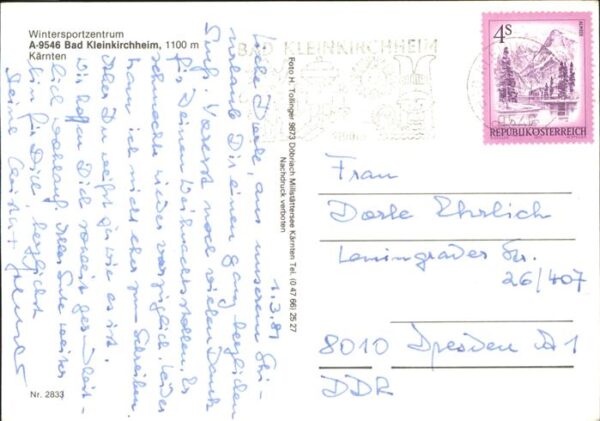 Wintersportzentrum
A-9546 Bad Kleinkirchheim, 1100 m
Kärnten
BAD KLEINKIRCHHEIM
4S
ALMSEE
REPUBLIK ÖSTERREICH
Foto H. Tollinger 9873 Döbriach Millstättersee Kärnten Tel. (0 47 66) 25 27
Nachdruck verboten
1.3.81
Liebe Dorle, aus unserem Ski-
urlaub Dir einen ganz herzlichen
Gruß. Vorerst noch vielen Dank
für Deinen Weihnachtsstollen. Er
schmeckte wieder vorzüglich. Leider
kam ich nicht eher zum Schreiben.
Aber Du weißt ja wie es ist.
Wir hoffen Dich soweit gesundheit-
lich wohlauf. Alles Gute weiter-
hin für Dich, herzlichst
Deine
Frau
Dorle Ehrlich
Leningrader Str.
26/407
8010 Dresden A 1
DDR
Nr. 2833